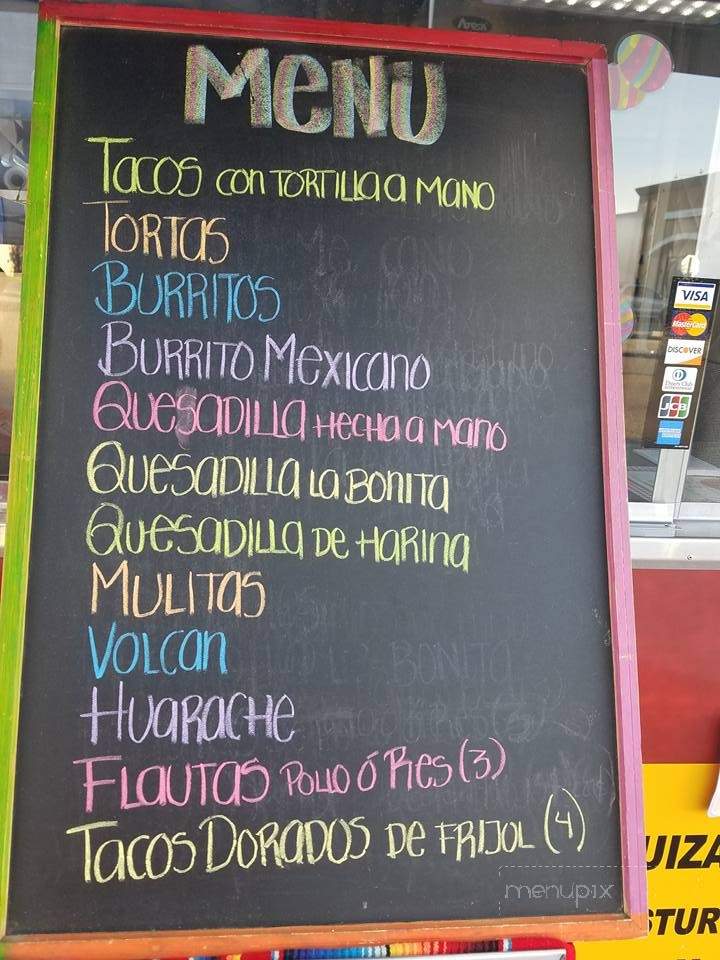 MENU
TACOS CON TORTILLA A MANO
TORTAS
BURRITOS
BURRITO MEXICANO
QUESADILLA HECHA A MANO
QUESADILLA LA BONITA
QUESADILLA DE HARINA
MULITAS
VOLCAN
HUARACHE
FLAUTAS POLLO Ó RES (3)
TACOS DORADOS DE FRIJOL (4)
menupix
VISA
MasterCard
DISCOVER
Diners Club
JCB
UIZA
STUR